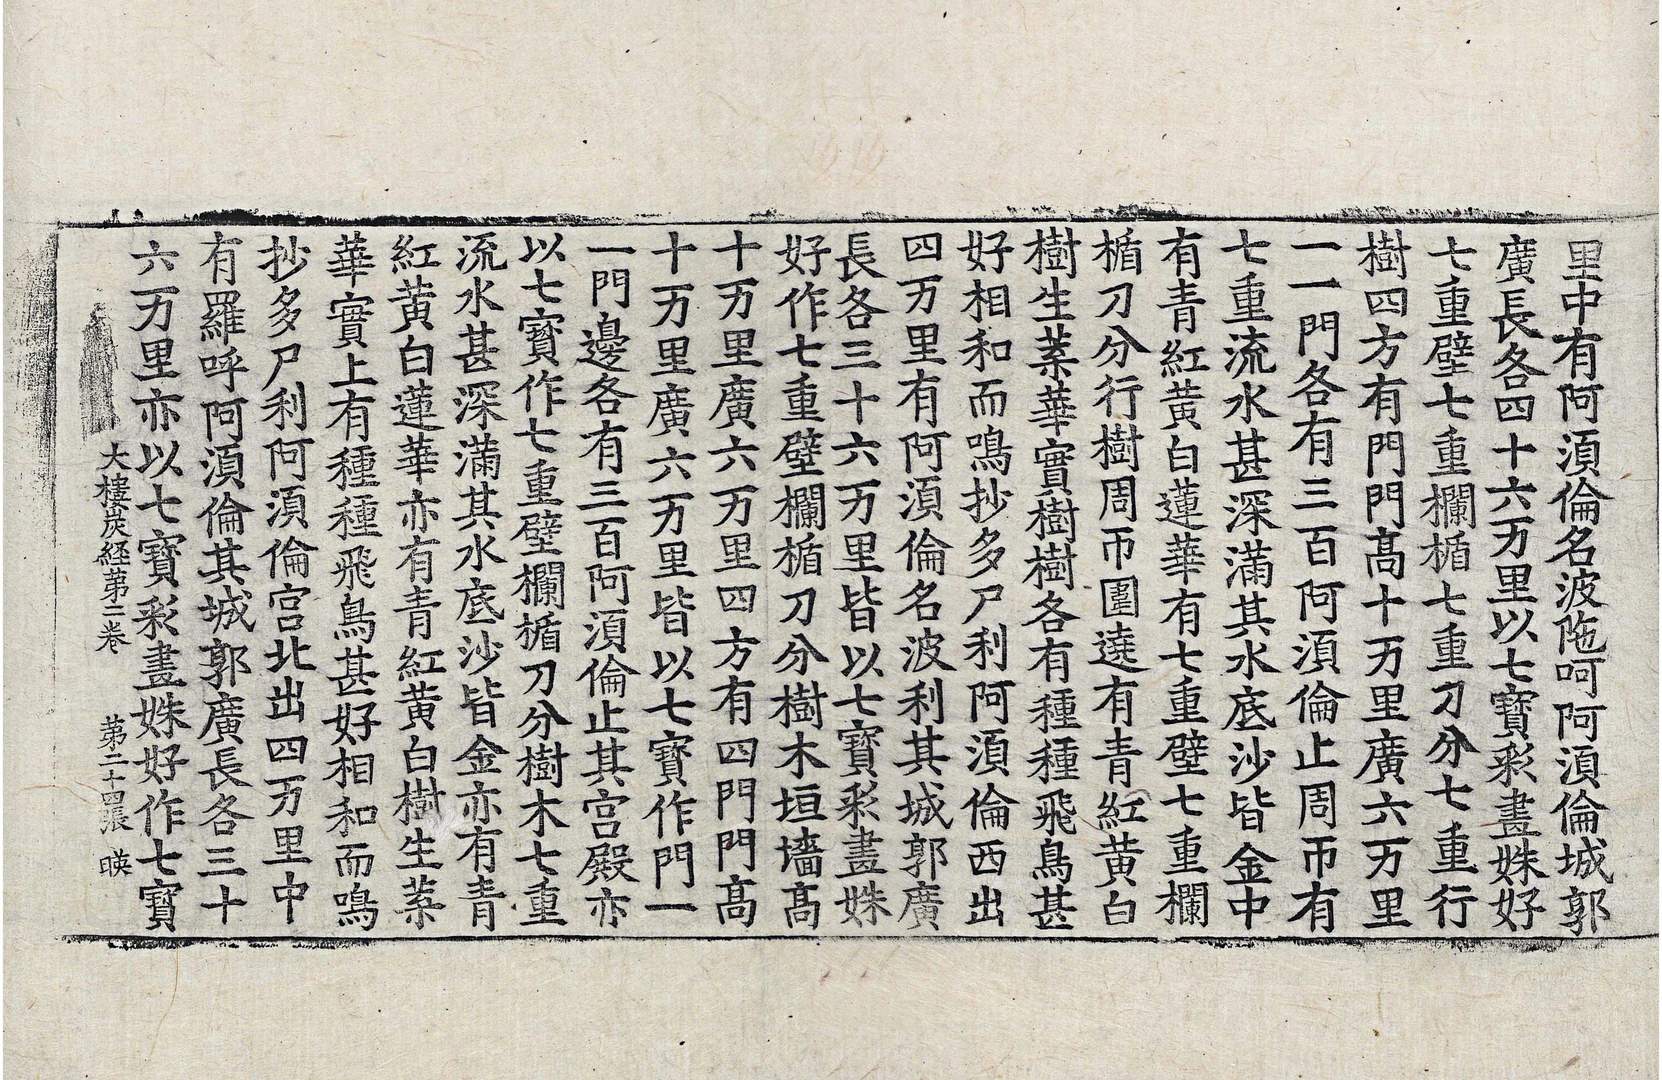 里中有阿湏倫名波陁呵阿湏倫城郭
廣長各四十六万里以七寶彩畫姝好
七重壁七重欄楯七重刀分七重行
樹四方有門門髙十万里廣六万里
一一門各有三百阿湏倫止周帀有
七重流水甚深滿其水底沙皆金中
有青紅黄白蓮華有七重壁七重欄
楯刀分行樹周帀圍遶有青紅黄白
樹生葉華實樹樹各有種種飛鳥甚
好相和而鳴抄多尸利阿湏倫西出
四万里有阿湏倫名波利其城郭廣
長各三十六万里皆以七寶彩畫姝
好作七重壁欄楯刀分樹木垣墻髙
十万里廣六万里四方有四門門髙
十万里廣六万里皆以七寶作門一
一門邊各有三百阿湏倫止其宫殿亦
以七寶作七重壁欄楯刀分樹木七重
流水甚深滿其水底沙皆金亦有青
紅黄白蓮華亦有青紅黄白樹生葉
華實上有種種飛鳥甚好相和而鳴
抄多尸利阿湏倫宫北出四万里中
有羅呼阿湏倫其城郭廣長各三十
六万里亦以七寶彩畫姝好作七寶
大樓炭経苐二卷　苐二十四張　暎